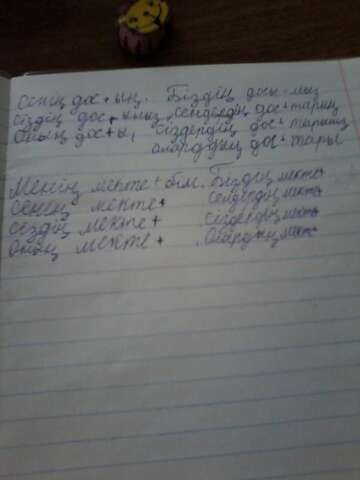 Сенің дос+ың. Біздің досы-мыз
Сіздің дос+ыңыз, Сендердің дос+тарың
Оның дос+ы, Сіздердің дос+тарыңыз
олардыдың дос+тары
Менің мекте+бім. Біздің мекте
Сенең мекте+ Сендердің мекте
Сездің мекте+ Сіздердің мекте
Оның мекте+ Олардың мекте